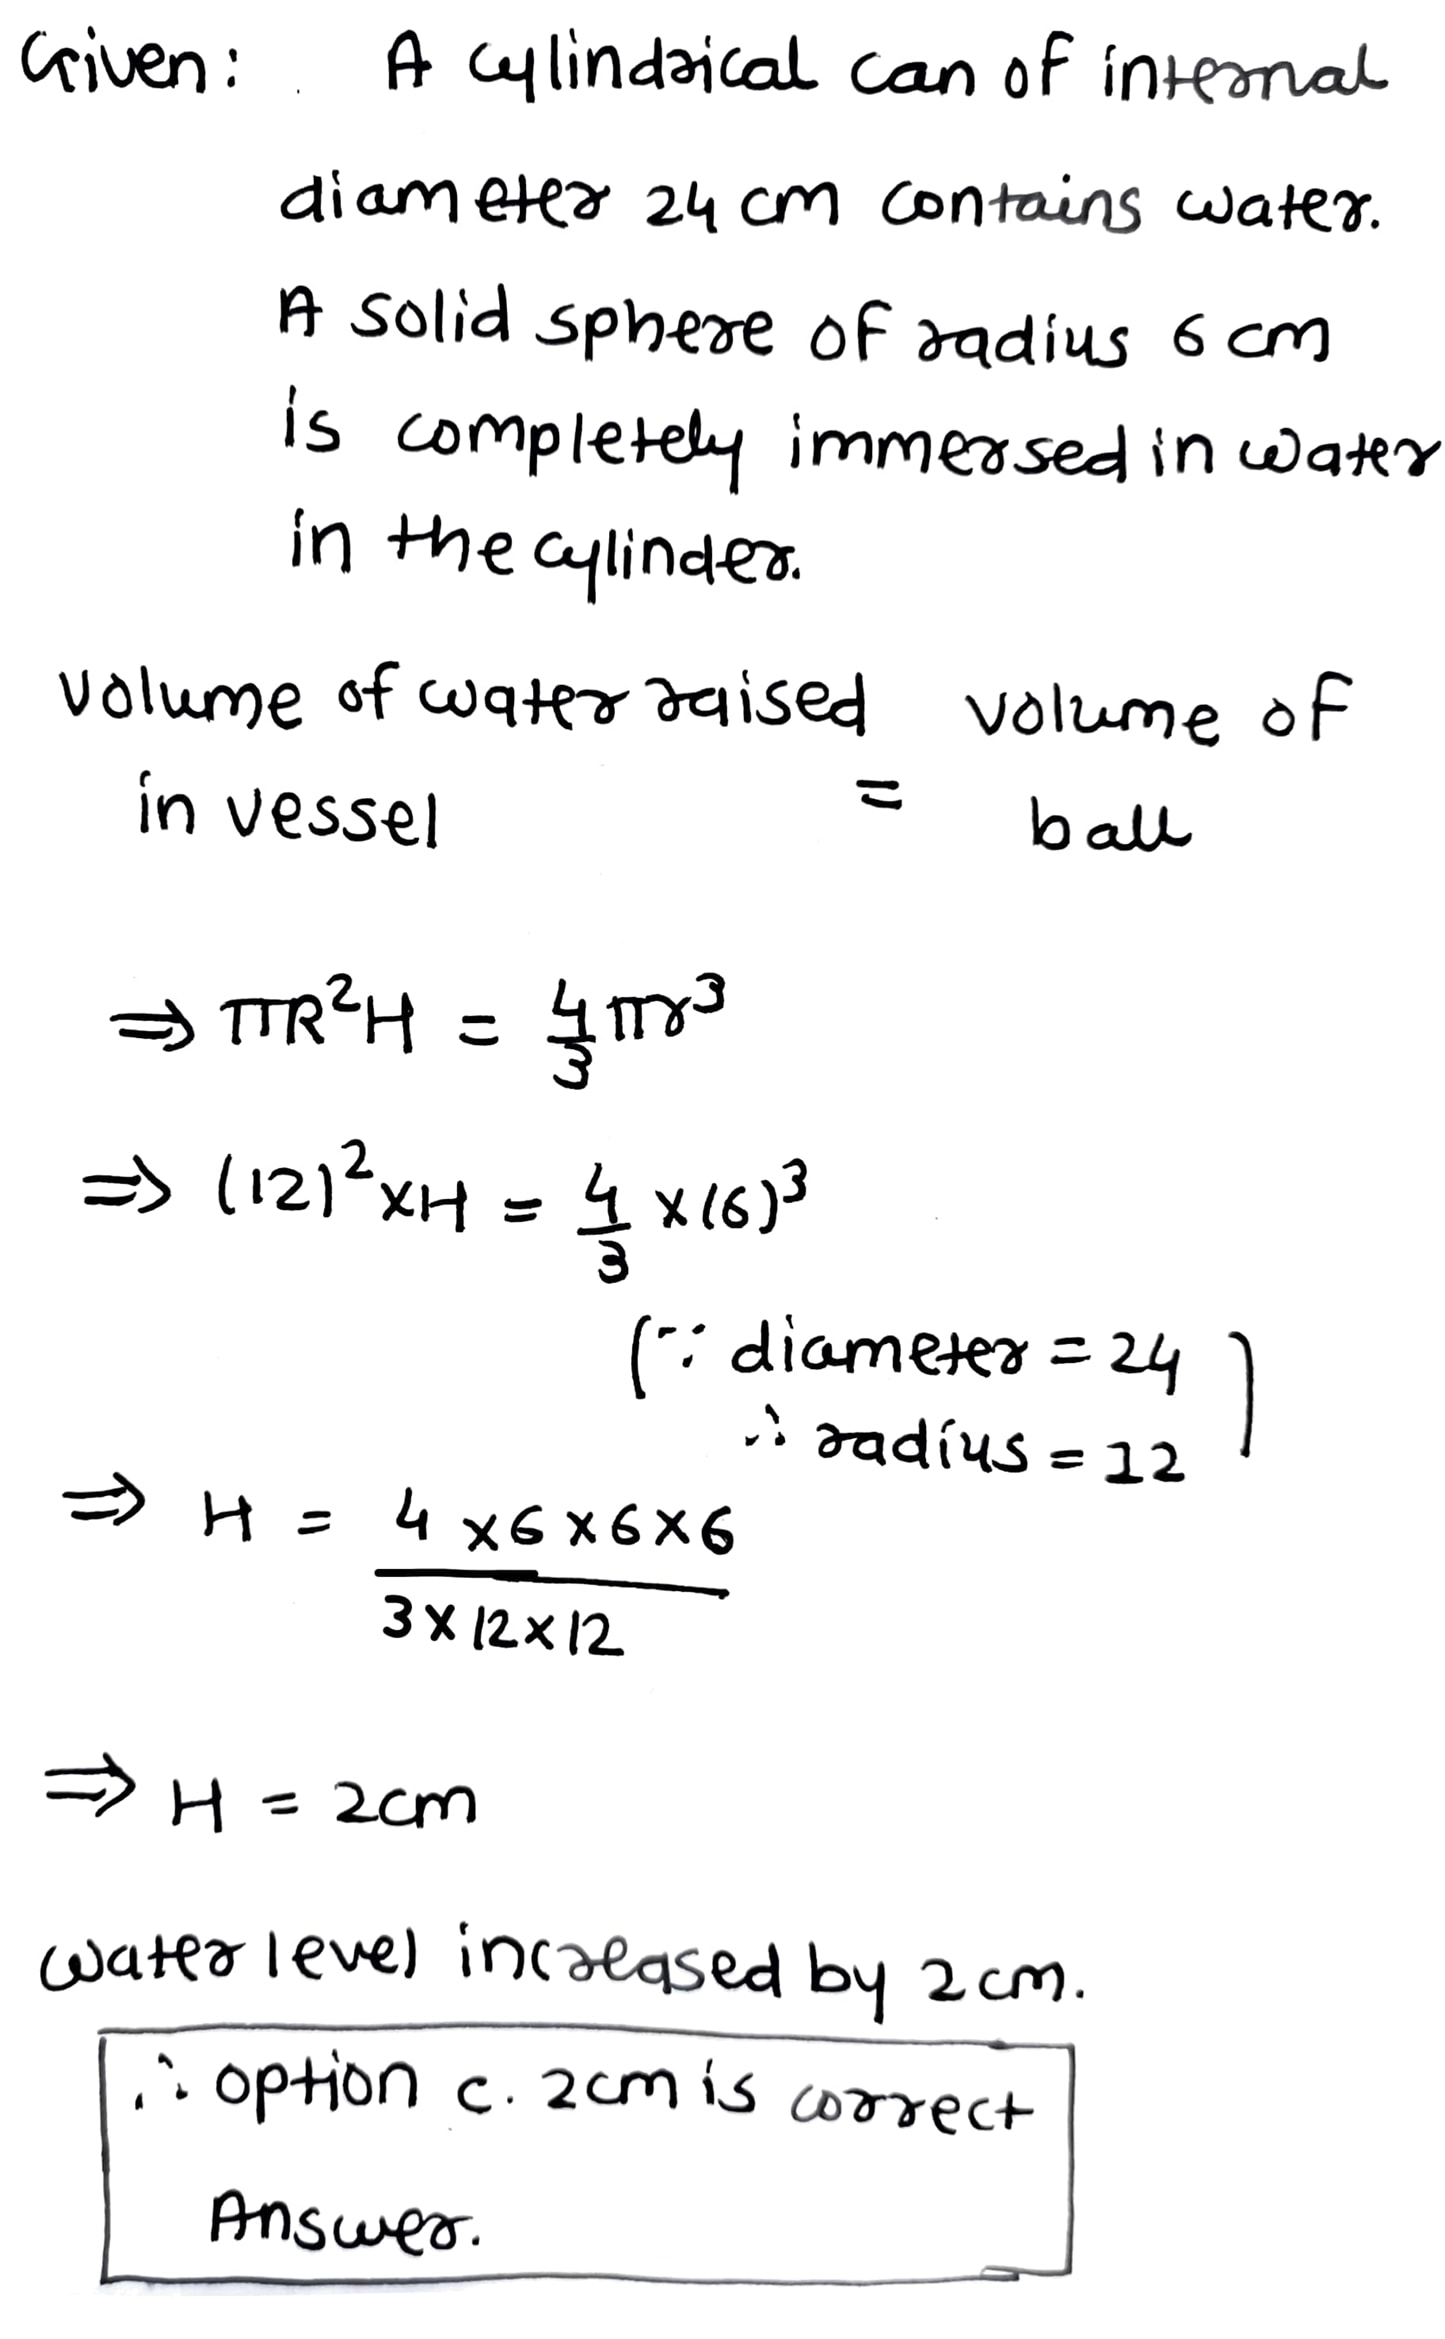 Given: A cylindrical can of internal
diameter 24 cm contains water.
A solid sphere of radius 6 cm
is completely immersed in water
in the cylinder.
Volume of water raised volume of
in vessel = ball
⇒ πR²H = 4/3 πr³
⇒ (12)² × H = 4/3 × (6)³
(∵ diameter = 24
∴ radius = 12)
⇒ H = 4 × 6 × 6 × 6 / 3 × 12 × 12
⇒ H = 2cm
water level increased by 2 cm.
∴ option c. 2cm is correct
Answer.